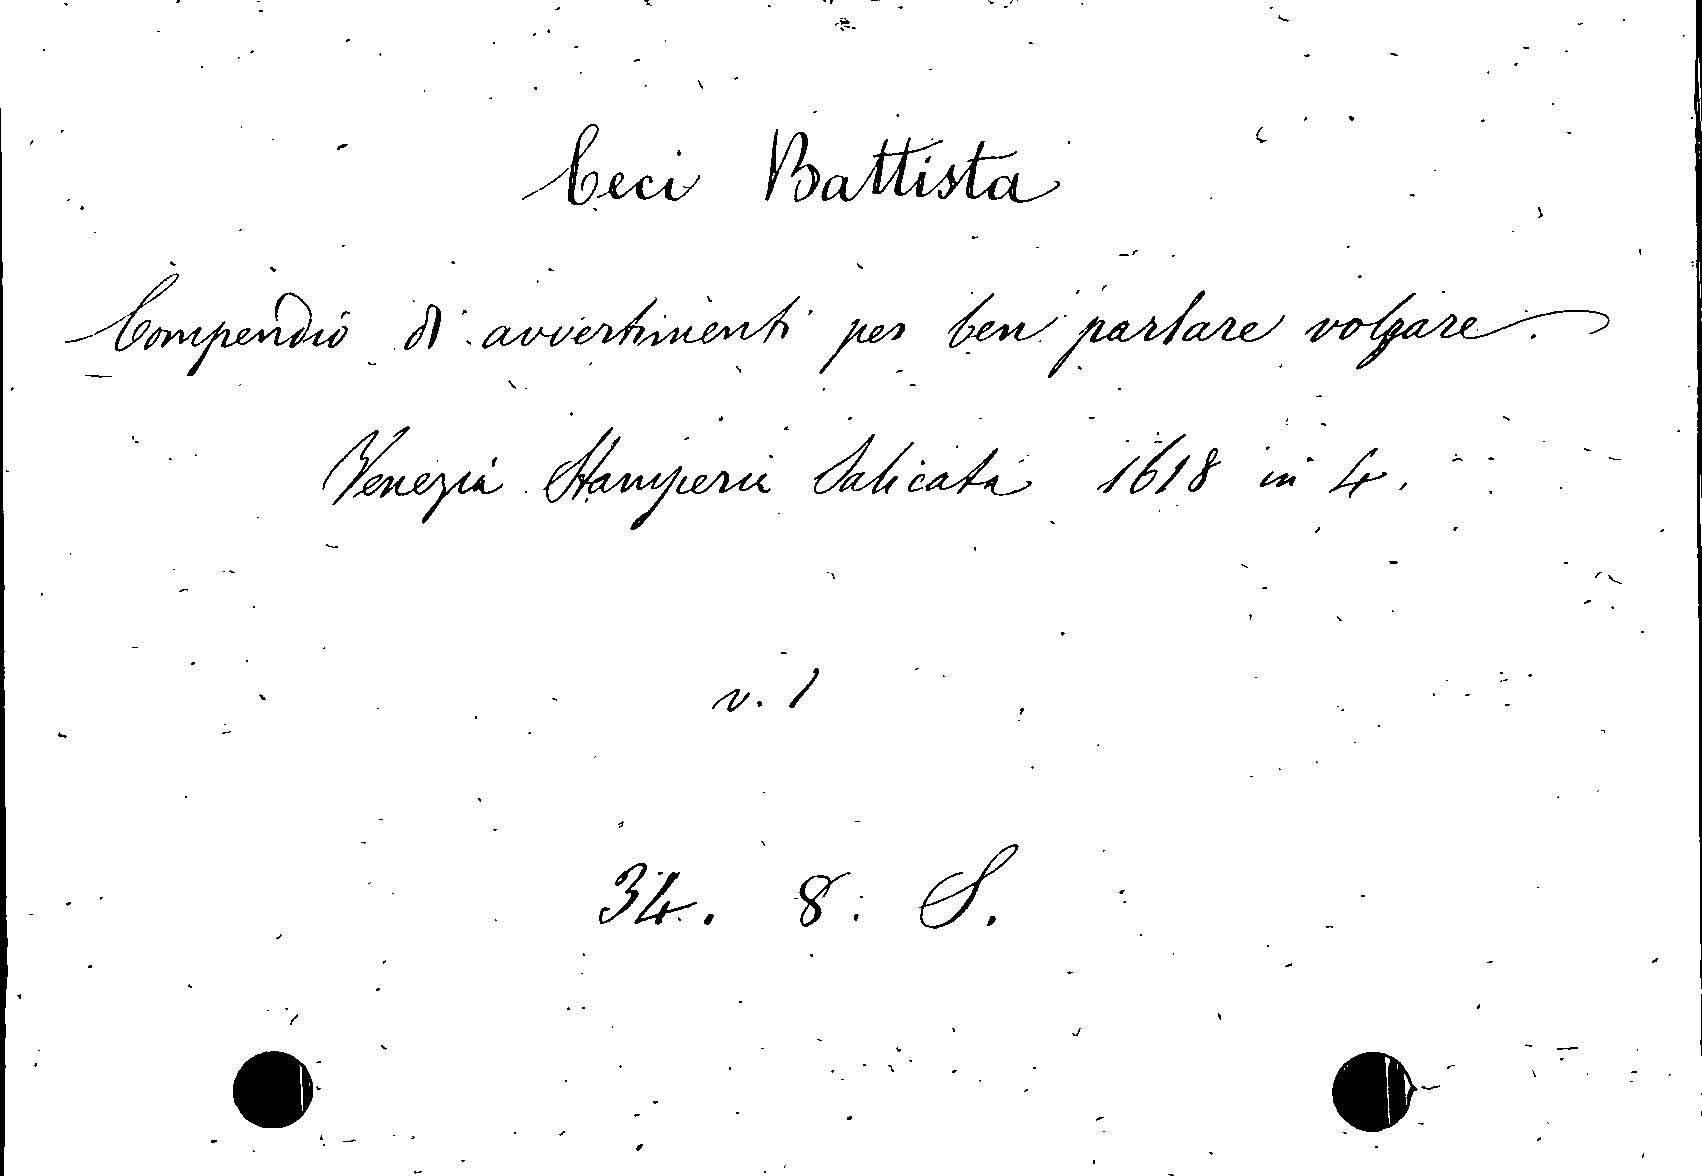 Ceci Battista
Compendio di avvertimenti per ben parlare volgare.
Venezia Stamperia Salicata 1618 in 4.
v. 1
34. 8. S.